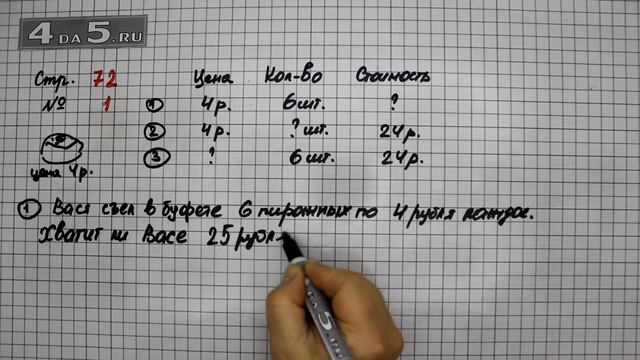 4DA5.RU
Стр. 72 Цена Кол-во Стоимость
№ 1 1 4р. 6шт. ?
2 4р. ? шт. 24р.
3 ? 6 шт. 24р.
цена 4р.
1 Вася съел в буфете 6 пирожных по 4 рубля каждое.
Хватит ли Васе 25 рубл